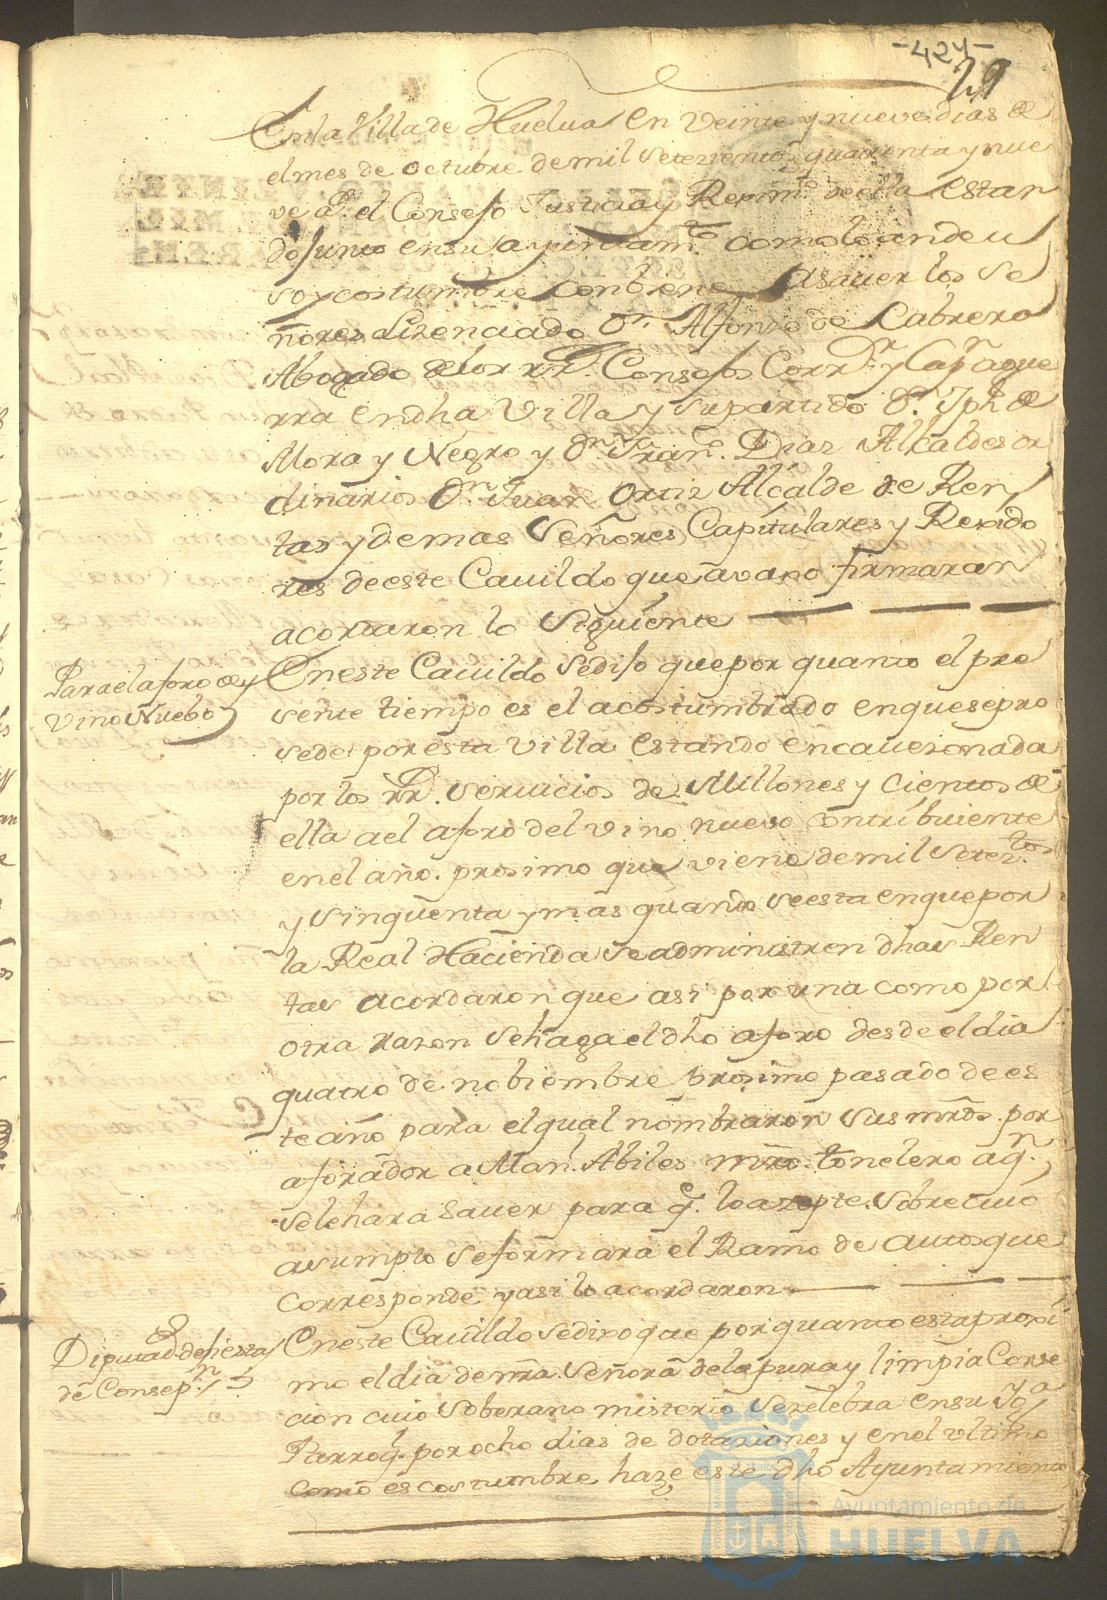 -424-
29
En la Villa de Huelva en veinte y nueve dias de
el mes de octubre de mil setezientos quarenta y nue
ve as. el Consejo Justicia y Rexim.to de ella estan
do junto en su ayuntam.to como lo an de u
so y costumbre combiene a sauer los se
ñores Lizenciado D.n Alfonso de Cabrera
Abogado de los RR.s Consejos Corr.or y Cap.n a gue
rra en dha Villa y su partido D.n Jph de
Mora y Negro y D.n Fran.co Diaz Alcaldes or
dinarios D.n Juan Ortiz Alcalde de Ren
tas y demas Señores Capitulares y Rexido
res de este Cauildo que avajo firmaran
acordaron lo siguiente
Para el aforo de
Vino Nuebo
En este Cauildo se dijo que por quanto el pre
sente tiempo es el acostumbrado en que se pro
sede por esta Villa estando encauezonada
por los RR.s servicios de Millones y Cientos de
ella a el aforo del vino nuevo contribuiente
en el año proximo que viene de mil setez.tos
y sinquenta y mas quando se esta en que por
la Real Hacienda se administren dhas Ren
tas acordaron que asi por una como por
otra razon se haga el dho aforo desde el dia
quatro de nobiembre proximo pasado de es
te año para el qual nombraron sus mrds. por
aforador a Man.l Abiles mro. tonelero a q.n
se le hara sauer para q. lo azepte. sobre cuio
asumpto se formara el Ramo de autos que
corresponde y asi lo acordaron
Diputad. de fiesta
de Consep.n
En este Cauildo se dixo que por quanto esta proxi
mo el dia de nra. Señora de la pura y limpia Conse
cion cuio soberano misterio se zelebra en su Yg.a
Parroq. por ocho dias de dotaziones y en el ultimo
como es costumbre haze este dho Ayuntamiento
Ayuntamiento de
HUELVA